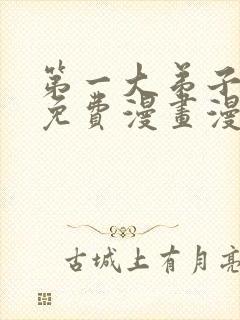 第一大弟子
免費漫畫漫
古城上有月亮